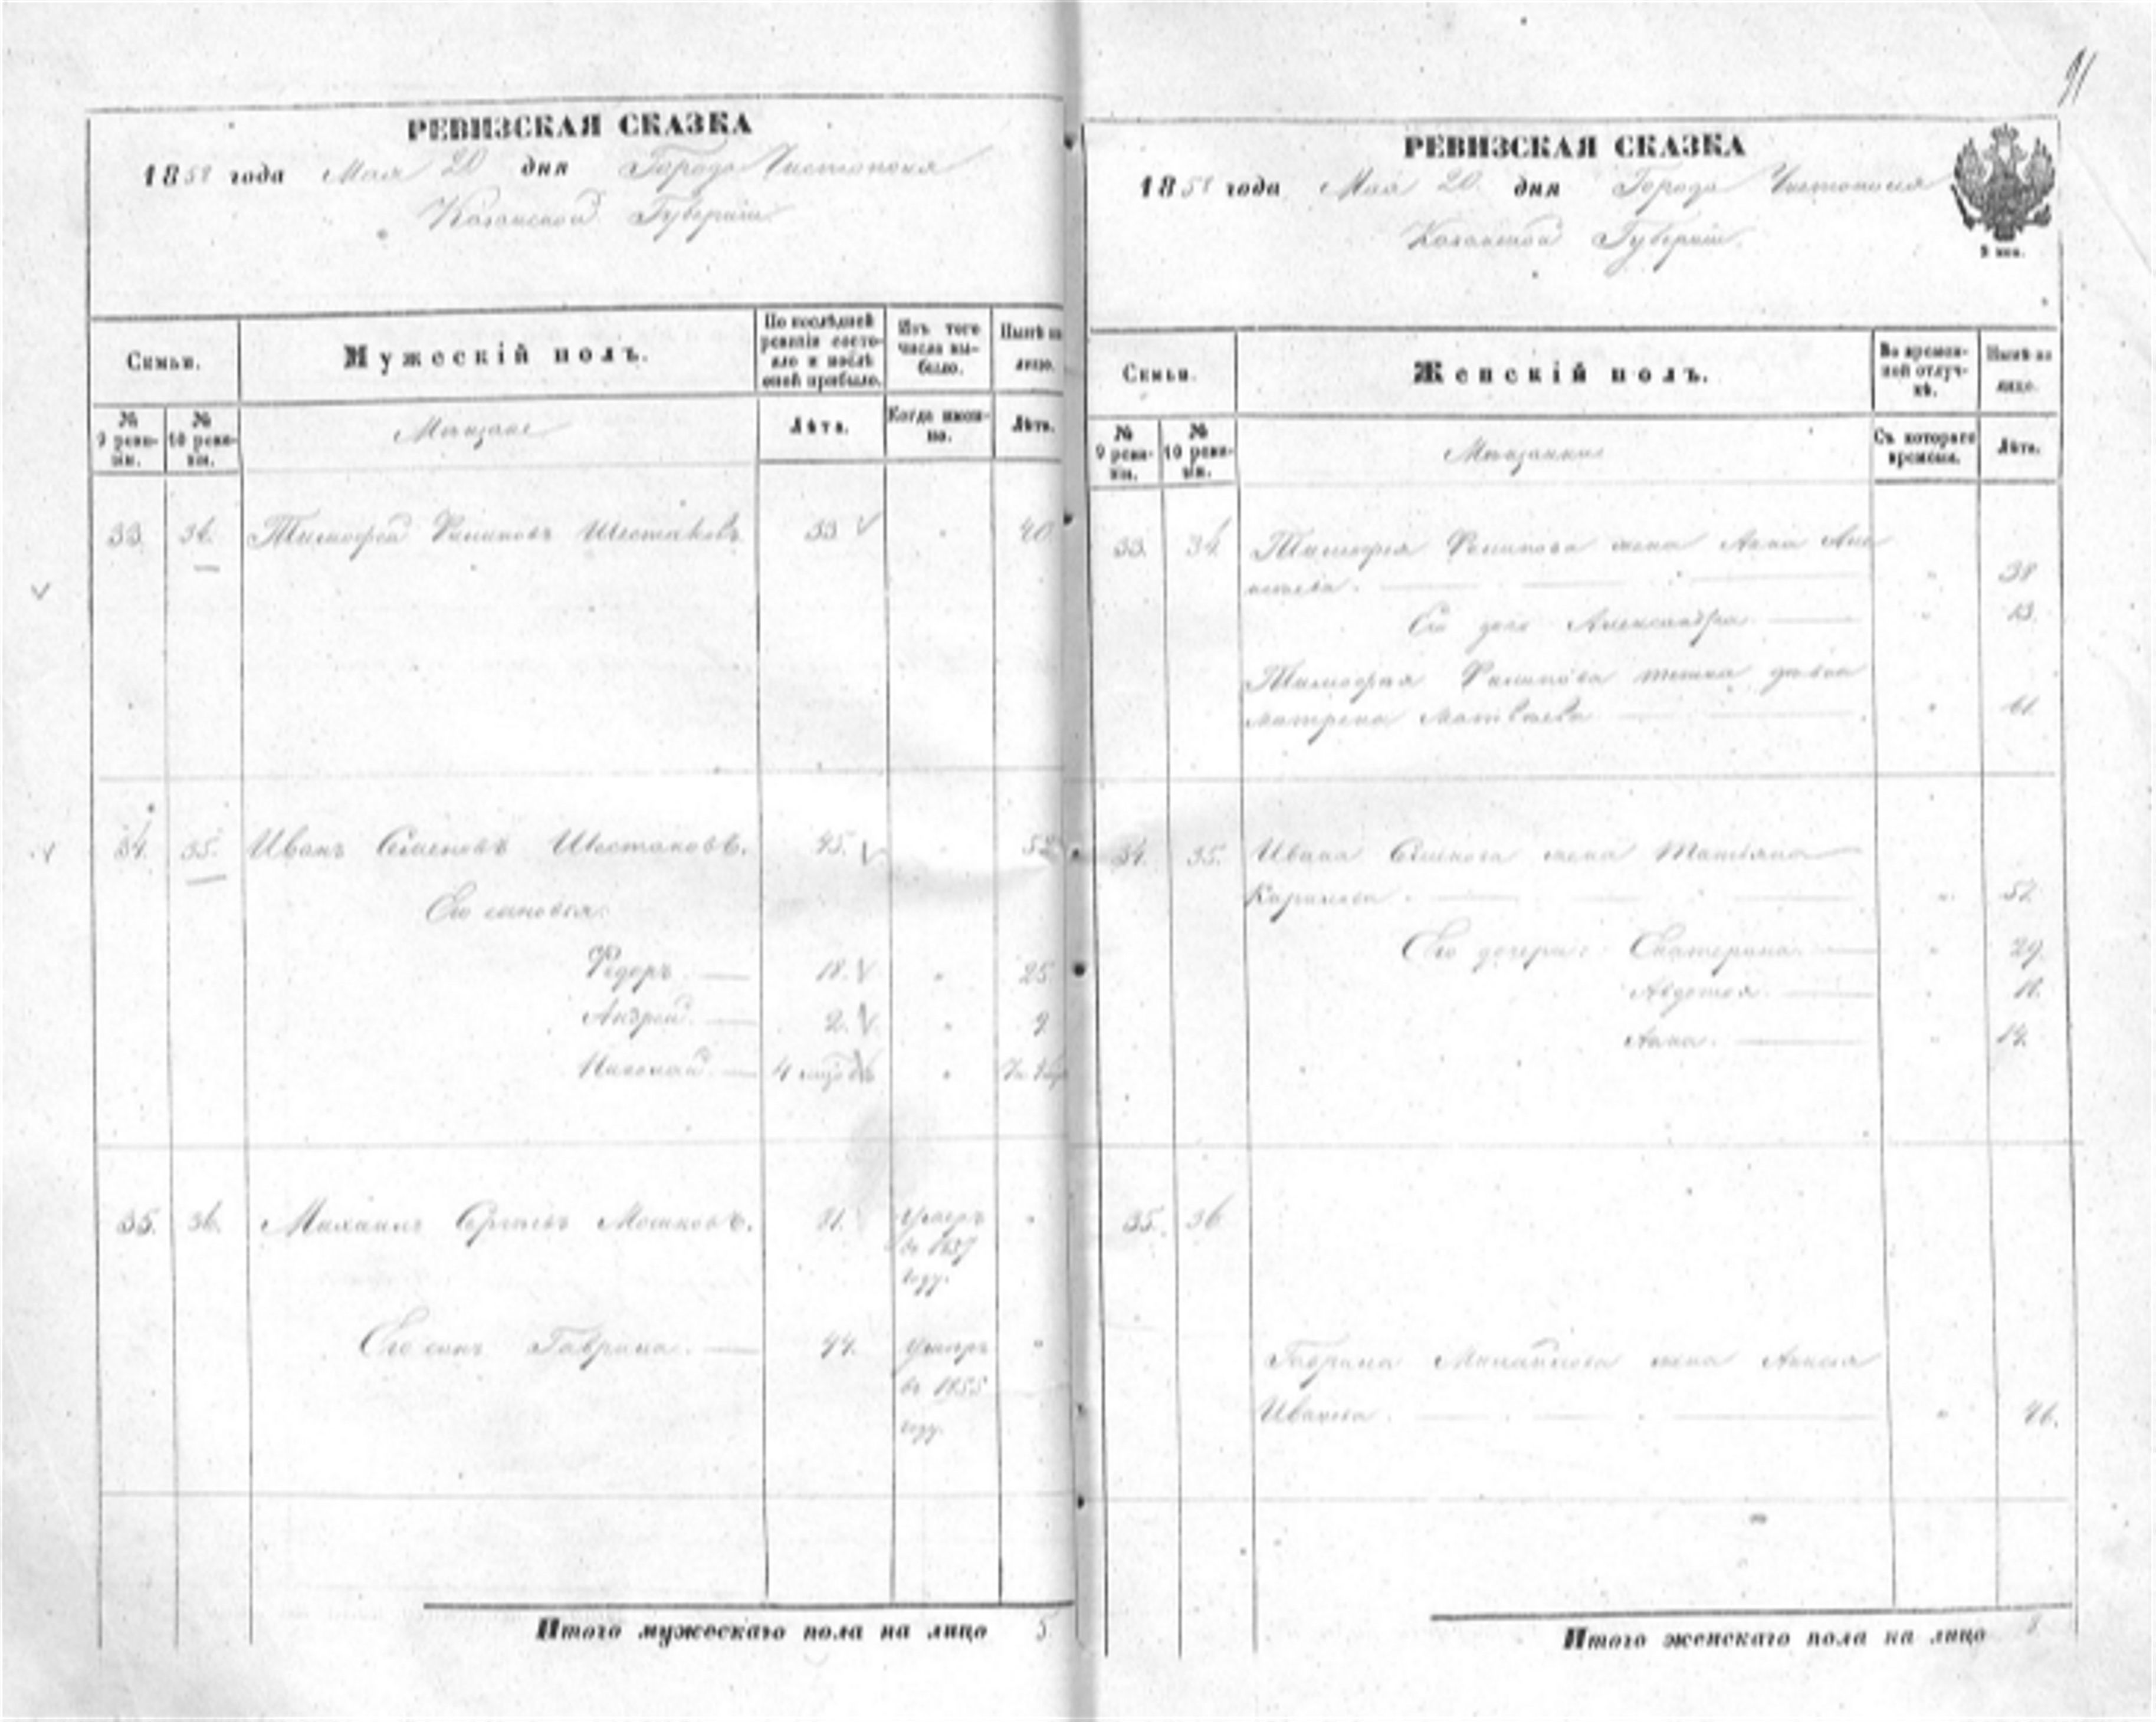 91
РЕВИЗСКАЯ СКАЗКА
1858 года Мая 20 дня Города Чистополя
Казанской Губерніи
Семьи.
Мужескій полъ.
По послѣдней ревизіи состояло и послѣ оной прибыло.
Изъ того числа выбыло.
Нынѣ на лицо.
№ 9 ревизіи.
№ 10 ревизіи.
Мѣщане
Лѣта.
Когда именно.
Лѣта.
33. 34. Тимофей Филиповъ Шестаковъ 33 " 40.
34. 35. Иванъ Семеновъ Шестаковъ. 45. " 52
Его сыновья:
Федоръ 18. " 25
Андрей 2. " 9
Николай 4 "
35. 36. Михаилъ Сергѣевъ Мошковъ. 81. умеръ "
въ 1857
году.
Его сынъ Гаврила. 44. умеръ "
въ 1855
году.
Итого мужескаго пола на лицо 5.
РЕВИЗСКАЯ СКАЗКА
1858 года Мая 20 дня Города Чистополя
Казанской Губерніи.
9 коп.
Семьи.
Женскій полъ.
Во временной отлучкѣ.
Нынѣ на лицо.
№ 9 ревизіи.
№ 10 ревизіи.
Мѣщанки
Съ котораго времени.
Лѣта.
33. 34. Тимофея Филипова жена Анна
" 38
Его дочь Александра " 13.
Тимофея Филипова тетка девка
Матрена Матвѣева " 61.
34. 35. Ивана Семенова жена Татьяна
" 52.
Его дочери: Екатерина " 29.
Авдотья. " 18.
Анна. " 14.
35. 36
Гаврила Михайлова жена
Иванова. " 46.
Итого женскаго пола на лицо 8